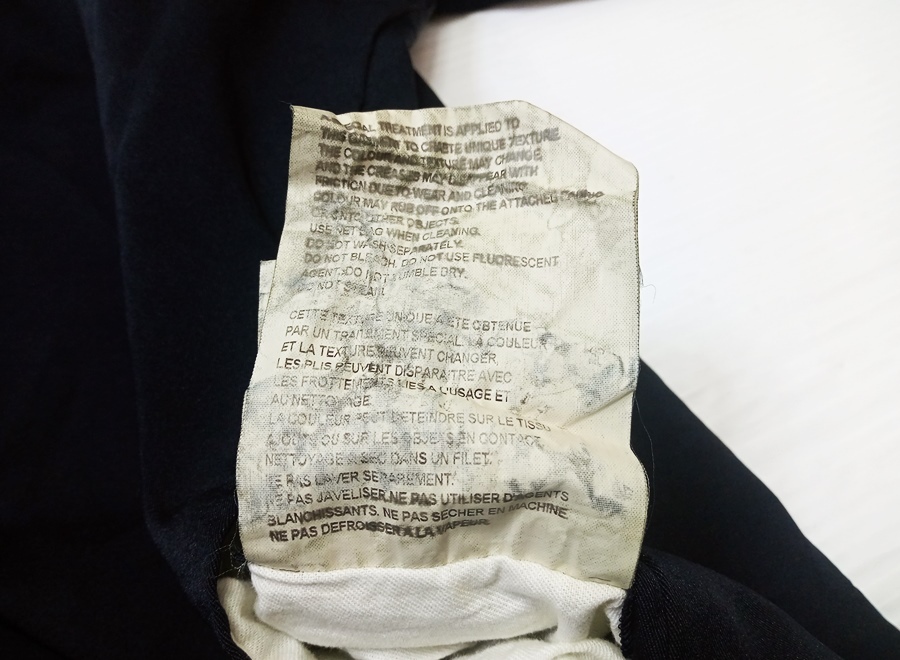 A SPECIAL TREATMENT IS APPLIED TO
THIS GARMENT TO CRAETE UNIQUE TEXTURE.
THE COLOUR AND TEXTURE MAY CHANGE
AND THE CREASES MAY DISAPPEAR WITH
FRICTION DUE TO WEAR AND CLEANING.
COLOUR MAY RUB OFF ONTO THE ATTACHED
OR ONTO OTHER OBJECTS.
USE NET BAG WHEN CLEANING.
DO NOT WASH SEPARATELY.
DO NOT BLEACH. DO NOT USE FLUORESCENT
AGENT. DO NOT TUMBLE DRY.
DO NOT STEAM.
CETTE TEXTURE UNIQUE A ETE OBTENUE
PAR UN TRAITEMENT SPECIAL. LA COULEUR
ET LA TEXTURE PEUVENT CHANGER
LES PLIS PEUVENT DISPARAITRE AVEC
LES FROTTEMENTS LIES A L'USAGE ET
AU NETTOYAGE
LA COULEUR PEUT DETEINDRE SUR LE TISSU
AJOUTE OU SUR LES OBJETS EN CONTACT.
NETTOYAGE A SEC DANS UN FILET.
NE PAS LAVER SEPAREMENT.
NE PAS JAVELISER.NE PAS UTILISER D'AGENTS
BLANCHISSANTS. NE PAS SECHER EN MACHINE
NE PAS DEFROISSER A LA VAPEUR.